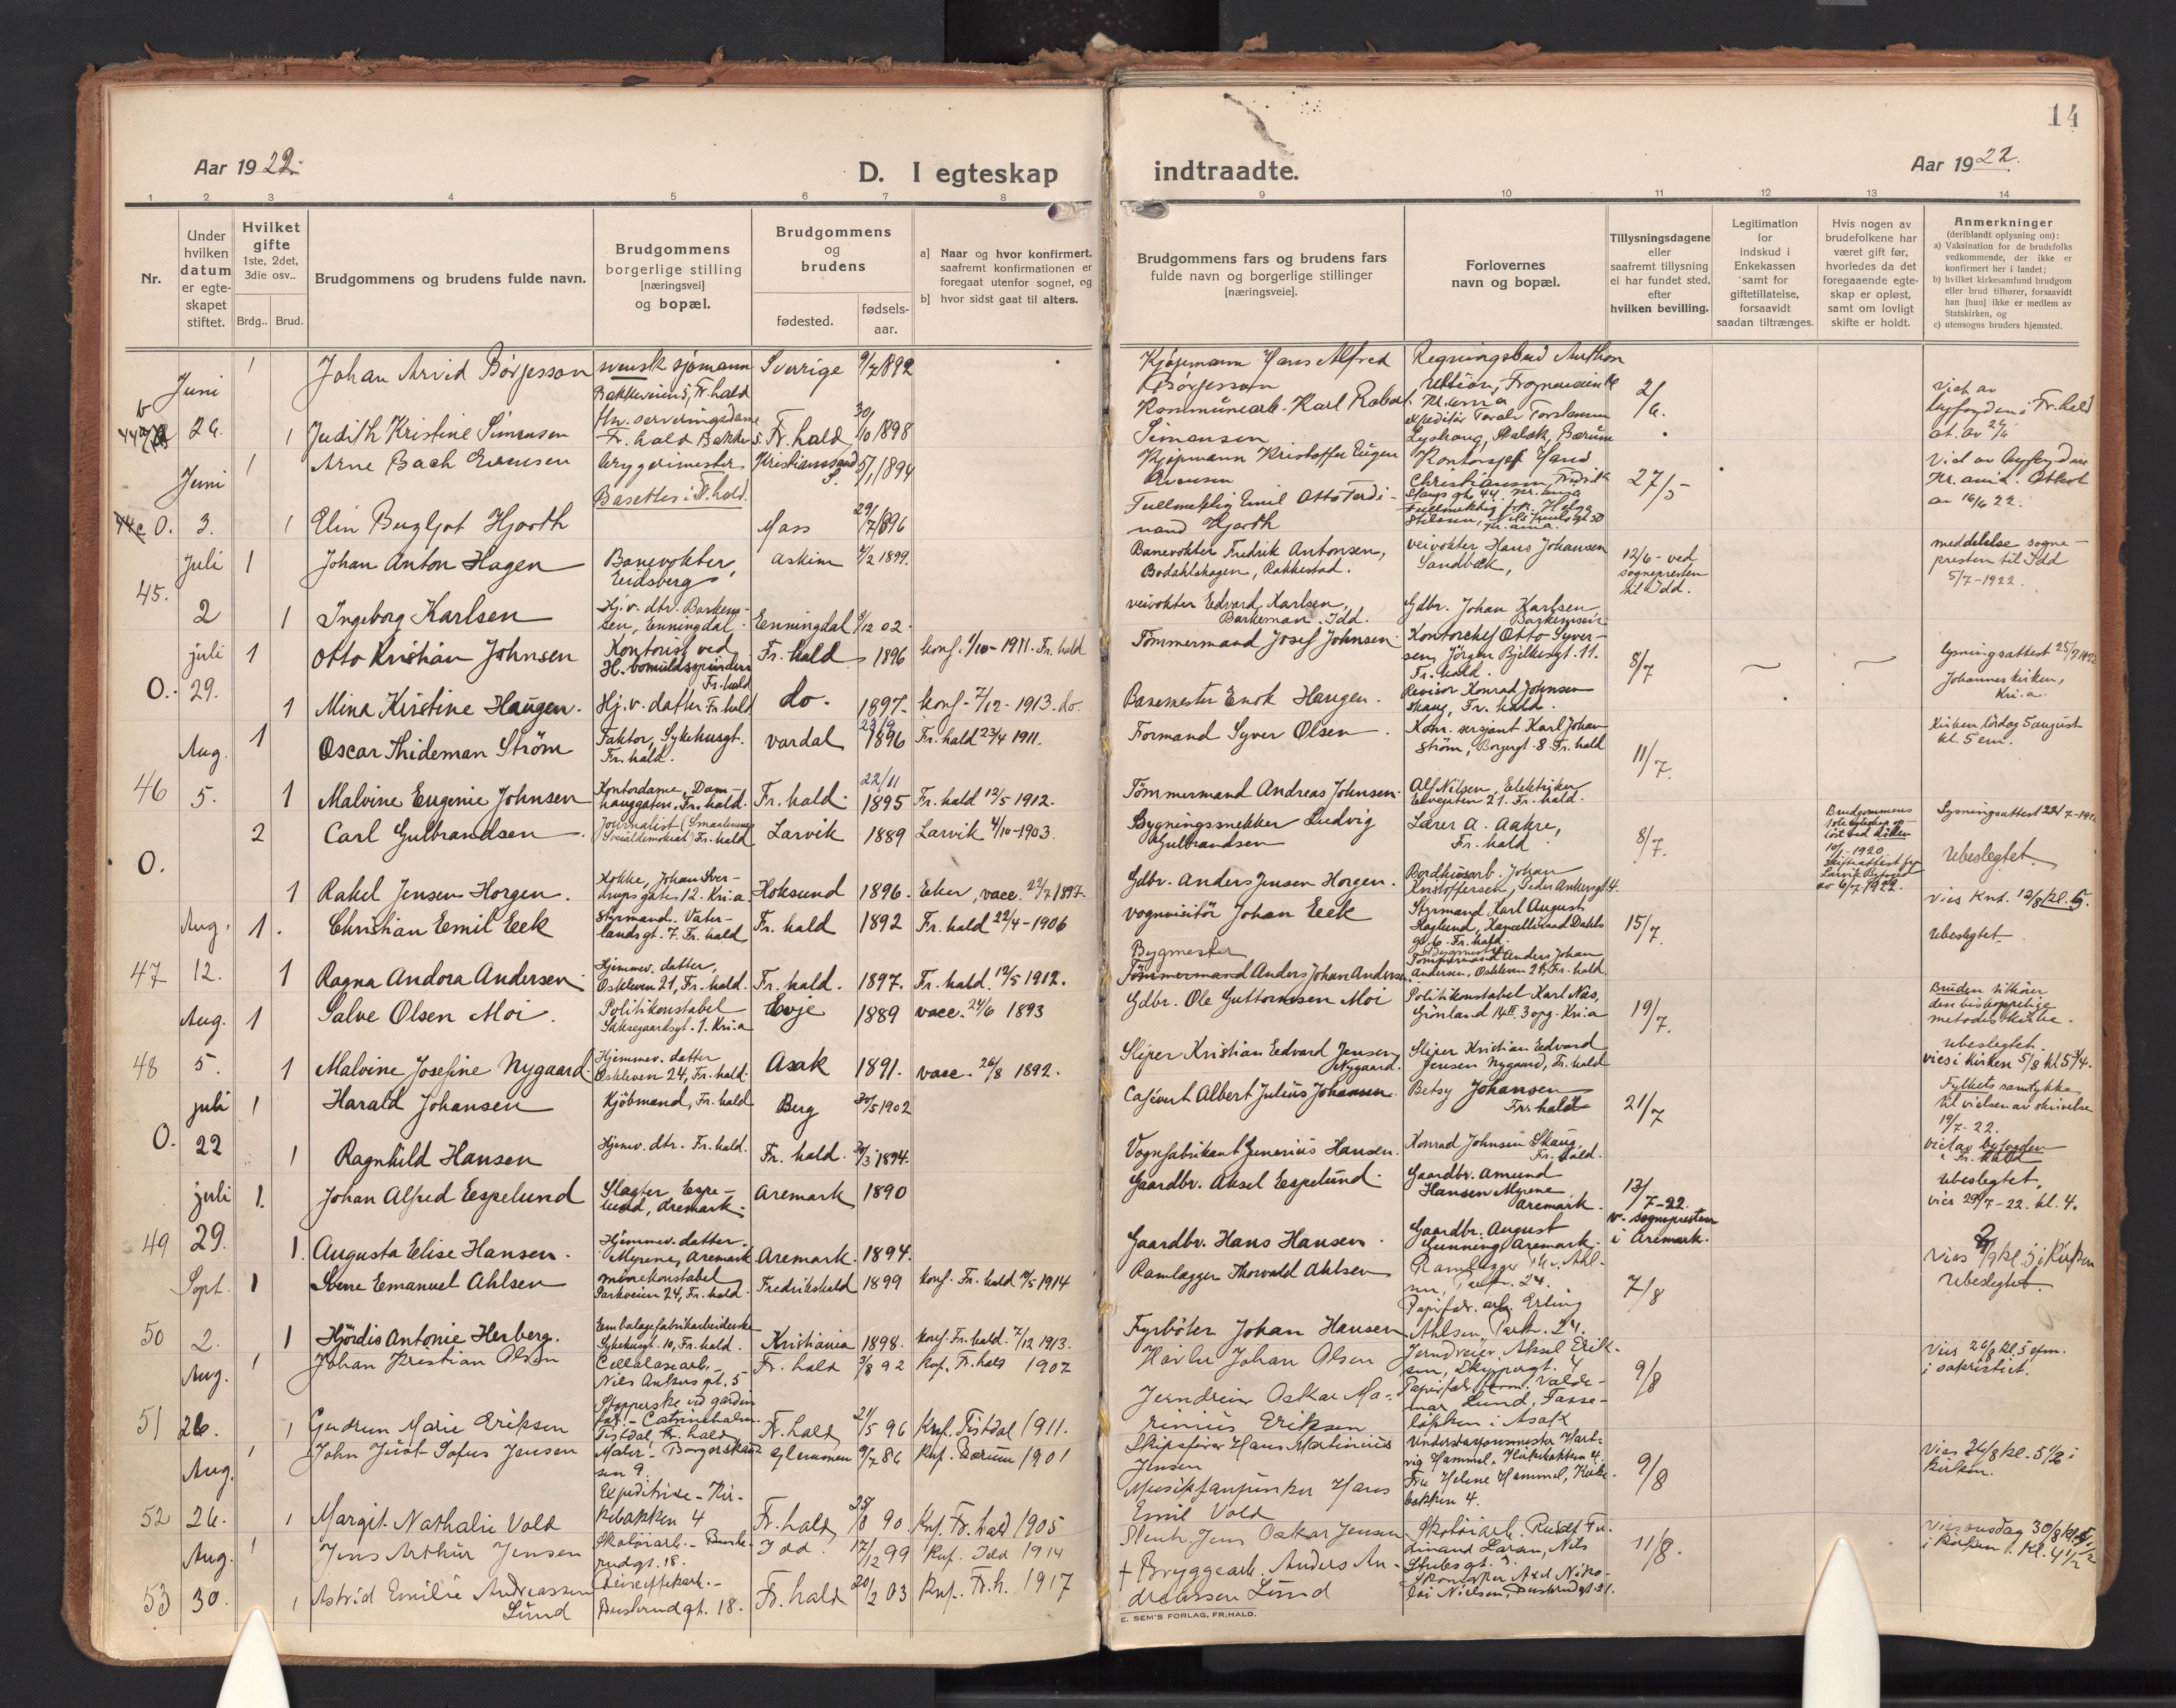 14
Aar 1922.
D. I egteskap
indtraadte.
Aar 1922.
1 2 3 4 5 6 7 8 9 10 11 12 13 14
Nr.
Under
hvilken
datum
er egte-
skapet
stiftet.
Hvilket
gifte
1ste, 2det,
3die osv..
Brdg.. Brud.
Brudgommens og brudens fulde navn.
Brudgommens
borgerlige stilling
[næringsvei]
og bopæl.
Brudgommens
og
brudens
fødested.
fødsels-
aar.
a] Naar og hvor konfirmert,
saafremt konfirmationen er
foregaat utenfor sognet, og
b] hvor sidst gaat til alters.
Brudgommens fars og brudens fars
fulde navn og borgerlige stillinger
[næringsveie].
Forlovernes
navn og bopæl.
Tillysningsdagene
eller
saafremt tillysning
ei har fundet sted,
efter
hvilken bevilling.
Legitimation
for
indskud i
Enkekassen
samt for
giftetillatelse,
forsaavidt
saadan tiltrænges.
Hvis nogen av
brudefolkene har
været gift før,
hvorledes da det
foregaaende egte-
skap er opløst,
samt om lovligt
skifte er holdt.
Anmerkninger
(deriblandt oplysning om):
a) Vaksination for de brudefolks
vedkommende, der ikke er
konfirmert her i landet;
b) hvilket kirkesamfund brudgom
eller brud tilhører, forsaavidt
han [hun] ikke er medlem av
Statskirken, og
c) utensogns bruders hjemsted.
Juni 1 Johan Arvid Börjesson svensk sjømann Sverrige 9/7 1892
Bakkeveien 5, Fr.hald
Kjøpmann Hans Alfred
Börjesson
Regningsbud Anthon
26. 1 Judith Kristine Simensen
Fr. hald Bakkev 5. Fr. hald 30/10 1898
Kommunearb. Karl Robert
Simensen
2/6.
Viet av
byfogden i Fr.hald
Juni 1 Arne Bach Evensen bryggerimester Kristianssand S. 5/1 1894
Basettes i Fr.hald
Kjøpmann Kristoffer Eugen
Evensen
Kontorsjef Hans
Christiansen, Fredrik
27/5
O. 3. 1 Elin Bugljot Hjorth Moss 29/7 1896
Fullmektig Emil Otto Ferdi-
nand Hjorth
16/6 22.
Juli 1 Johan Anton Hagen Banevokter, Eidsberg Askim 4/2 1899.
Banevokter Fredrik Antonsen,
Bodahlshagen, Rakkestad.
veivokter Hans Johansen
Sandbæk,
12/6 - ved
sognepresten
til Idd.
meddelelse sogne-
presten til Idd
5/7-1922.
45. 2 1 Ingeborg Karlsen Hj.v. dtr. Barkem-
sen, Enningdal. Enningdal 8/12 02.
veivokter Edvard Karlsen,
Barkeman. Idd.
Gdbr. Johan Karlsen,
juli 1 Otto Kristian Johnsen Kontorist ved
H. bomuldsspinderi
Fr.hald
Fr. hald 1896 konf. 1/10-1911. Fr. hald
Tömmermand Josef Johnsen.
Kontorchef Otto Syver-
sen, Jörgen Bjelkesgt. 11.
Fr. hald.
8/7
lysningsattest 25/7 1922
Johanneskirken,
Kri.a.
O. 29. 1 Mina Kristine Haugen. Hj.v. datter Fr.hald do. 1897. konf - 7/12 - 1913. do.
Basemester Enok Haugen.
Revisor Konrad Johnsen
Skaug, Fr. hald.
Aug. 1 Oscar Thideman Ström Faktor, Sykehusgt.
Fr. hald. Vardal 23/9 1896 Fr. hald 23/4 1911.
Formand Syver Olsen
Kom. sersjant Karl Johan
Ström, Borgergt. 8. Fr. hald
11/7.
Kirken, lördag 5 august
kl. 5 em.
46 5. 1 Malvine Eugenie Johnsen Kontordame, Dam-
hauggaten, Fr. hald. Fr. hald. 22/11 1895 Fr. hald 12/5 1912.
Tömmermand Andreas Johnsen.
Alf Nilsen, Elektriker
Elvegaten 21. Fr. hald.
2 Carl Gulbrandsen Journalist (Smaalenenes
Socialdemokrat) Fr. hald Larvik 1889 Larvik 4/10-1903.
Bygningssnekker Ludvig
Gulbrandsen
Lærer A. Aakre,
Fr. hald
8/7.
Brudgommens
Larvik Byfoged
av 6/7 1922.
Lysningsattest 22/7-1922
Ubeslegtet.
O. 1 Rakel Jensen Horgen. Kokke, Johan Sver-
drups gate 12. Kri.a Hoksund 1896. Eker, vacc. 22/7 1897.
Gdbr. Anders Jensen Horgen.
Bordhusarb. Johan
Kristoffersen, Peder Ankersgt 4.
vies Knt. 12/8 kl. 5.
Aug. 1. Christian Emil Eek Styrmand. Vater-
landsgt. 7. Fr. hald Fr. hald 1892 Fr. hald 22/4-1906
vognvisitör Johan Eek
Styrmand Karl August
15/7.
Ubeslegtet
47 12. 1 Ragna Andora Andersen Hjemmev. datter,
Oskleven 21, Fr. hald. Fr. hald. 1897. Fr. hald. 12/5 1912.
Bygmester
Tömmermand Anders Johan Andersen.
Tömmermand Anders Johan
Andersen, Oskleven 21, Fr. hald
Aug. 1 Salve Olsen Moi. Politikonstabel
Saksegaardsgt. 1. Kri.a Evje 1889 vacc. 24/6 1893
Gdbr. Ole Guttormsen Moi
Politikonstabel Karl Næs,
Grönland 14 II 3 opg. Kri.a
19/7.
Bruden tilhörer
den biskoppelige
metodistkirke.
Ubeslegtet.
48 5. 1 Malvine Josefine Nygaard. Hjemmev. datter
Oskleven 24, Fr. hald. Asak 1891. vacc. 26/8 1892.
Sliper Kristian Edvard Jensen
Nygaard.
Sliper Kristian Edvard
Jensen Nygaard, Fr. hald
vies i kirken 5/8 kl 5 3/4.
juli 1 Harald Johansen Kjöbmand, Fr. hald Berg 30/5 1902
Cafévert Albert Julius Johansen.
Betsy Johansen
Fr. hald
21/7
Fylkets samtykke
til vielsen av skrivelse
19/7-22.
O. 22 1 Ragnhild Hansen Hjemv. dtr. Fr. hald. Fr. hald. 1894.
Vognfabrikant Junerius Hansen.
Konrad Johnsen Skaug,
Fr. hald.
viet av byfogden
i Fr. hald
juli 1. Johan Alfred Espelund Slagter, Espe-
lund, Aremark. Aremark 1890
Gaardbr. Aksel Espelund.
Gaardbr. Amund
Hansen Myrene
Aremark.
13/7-22.
v. sognepresten
i Aremark.
Ubeslegtet.
vies 29/7-22. kl. 4.
49 29. 1. Augusta Elise Hansen. Hjemmev. datter.
Myrene, Aremark Aremark. 1894.
Gaardbr. Hans Hansen.
Gaardbr. August
Gunning, Aremark.
Sept. 1 Svene Emanuel Ahlsen minørkonstabel
Parkveien 24, Fr. hald. Fredrikshald 1899 konf. Fr. hald 1914
Ramlægger Thorvald Ahlsen
Ramlægger Th. Ahl-
7/8
Ubeslegtet.
50 2. 1 Hjördis Antonie Herberg. Emballagefabrikarbeiderske
Sykehusgt. 10, Fr. hald. Kristiania 1898. konf. Fr. hald. 7/12 1913.
Fyrböter Johan Hansen
Papirfabr. arb. Erling
Ahlsen, Parkv. 24.
Aug. 1 Johan Kristian Olsen Cellulosearb.
Nils Ankers gt. 5 Fr. hald 3/8 92 Knf. Fr. hald 1907
Johan Olsen
Jerndreier Aksel Erik-
sen, Skippergt. 4
9/8
Vies 26/8 kl. 5 efm.
i sakristiet.
51 26. 1 Gudrun Marie Eriksen Tistdal Fr. hald Fr. hald 21/5 96 Knf. Tistdal 1911.
Jerndreier Oskar Ma-
rinius Eriksen
mar Lund, Tosse-
løkken i Asak
Aug. 1 John Just Sofus Jensen Maler. Borgerskan-
sen 9. Glemmen 9/7 86 Knf. Bærum 1901
Skipsfører Hans Martinius
Jensen
vig Hammel, Kirkebakken 4.
Fru Helene Hammel, Kirke-
bakken 4.
9/8
Vies 26/8 kl. 5 1/2 i
kirken.
52 26. 1 Margit Nathalie Vold Expeditrise - Kir-
kebakken 4 Fr. hald 25/8 90. Knf. Fr. hald 1905
Hans
Emil Vold
Aug. 1 Jens Arthur Jensen Skotöiarb. - Buske-
rudgt. 18. Idd 17/12 99 Knf. Idd 1914
Stenh. Jens Oskar Jensen
Skotöiarb. Rudolf Fer-
dinand Larsen, Nils
Stubsgt. 3.
11/8.
Vies onsdag 30/8 kl.
i kirken. kl. 4 1/2
53 30. 1 Astrid Emilie Andreassen
Lund Reiseeffektarb. -
Buskerudgt. 18. Fr. hald 20/2 03 Knf. Fr. h. 1917
+ Bryggearb. Anders An-
dreassen Lund
Axel Niko-
lai Nielsen, Buskerudgt. 21.
E. SEM'S FORLAG, FR.HALD.